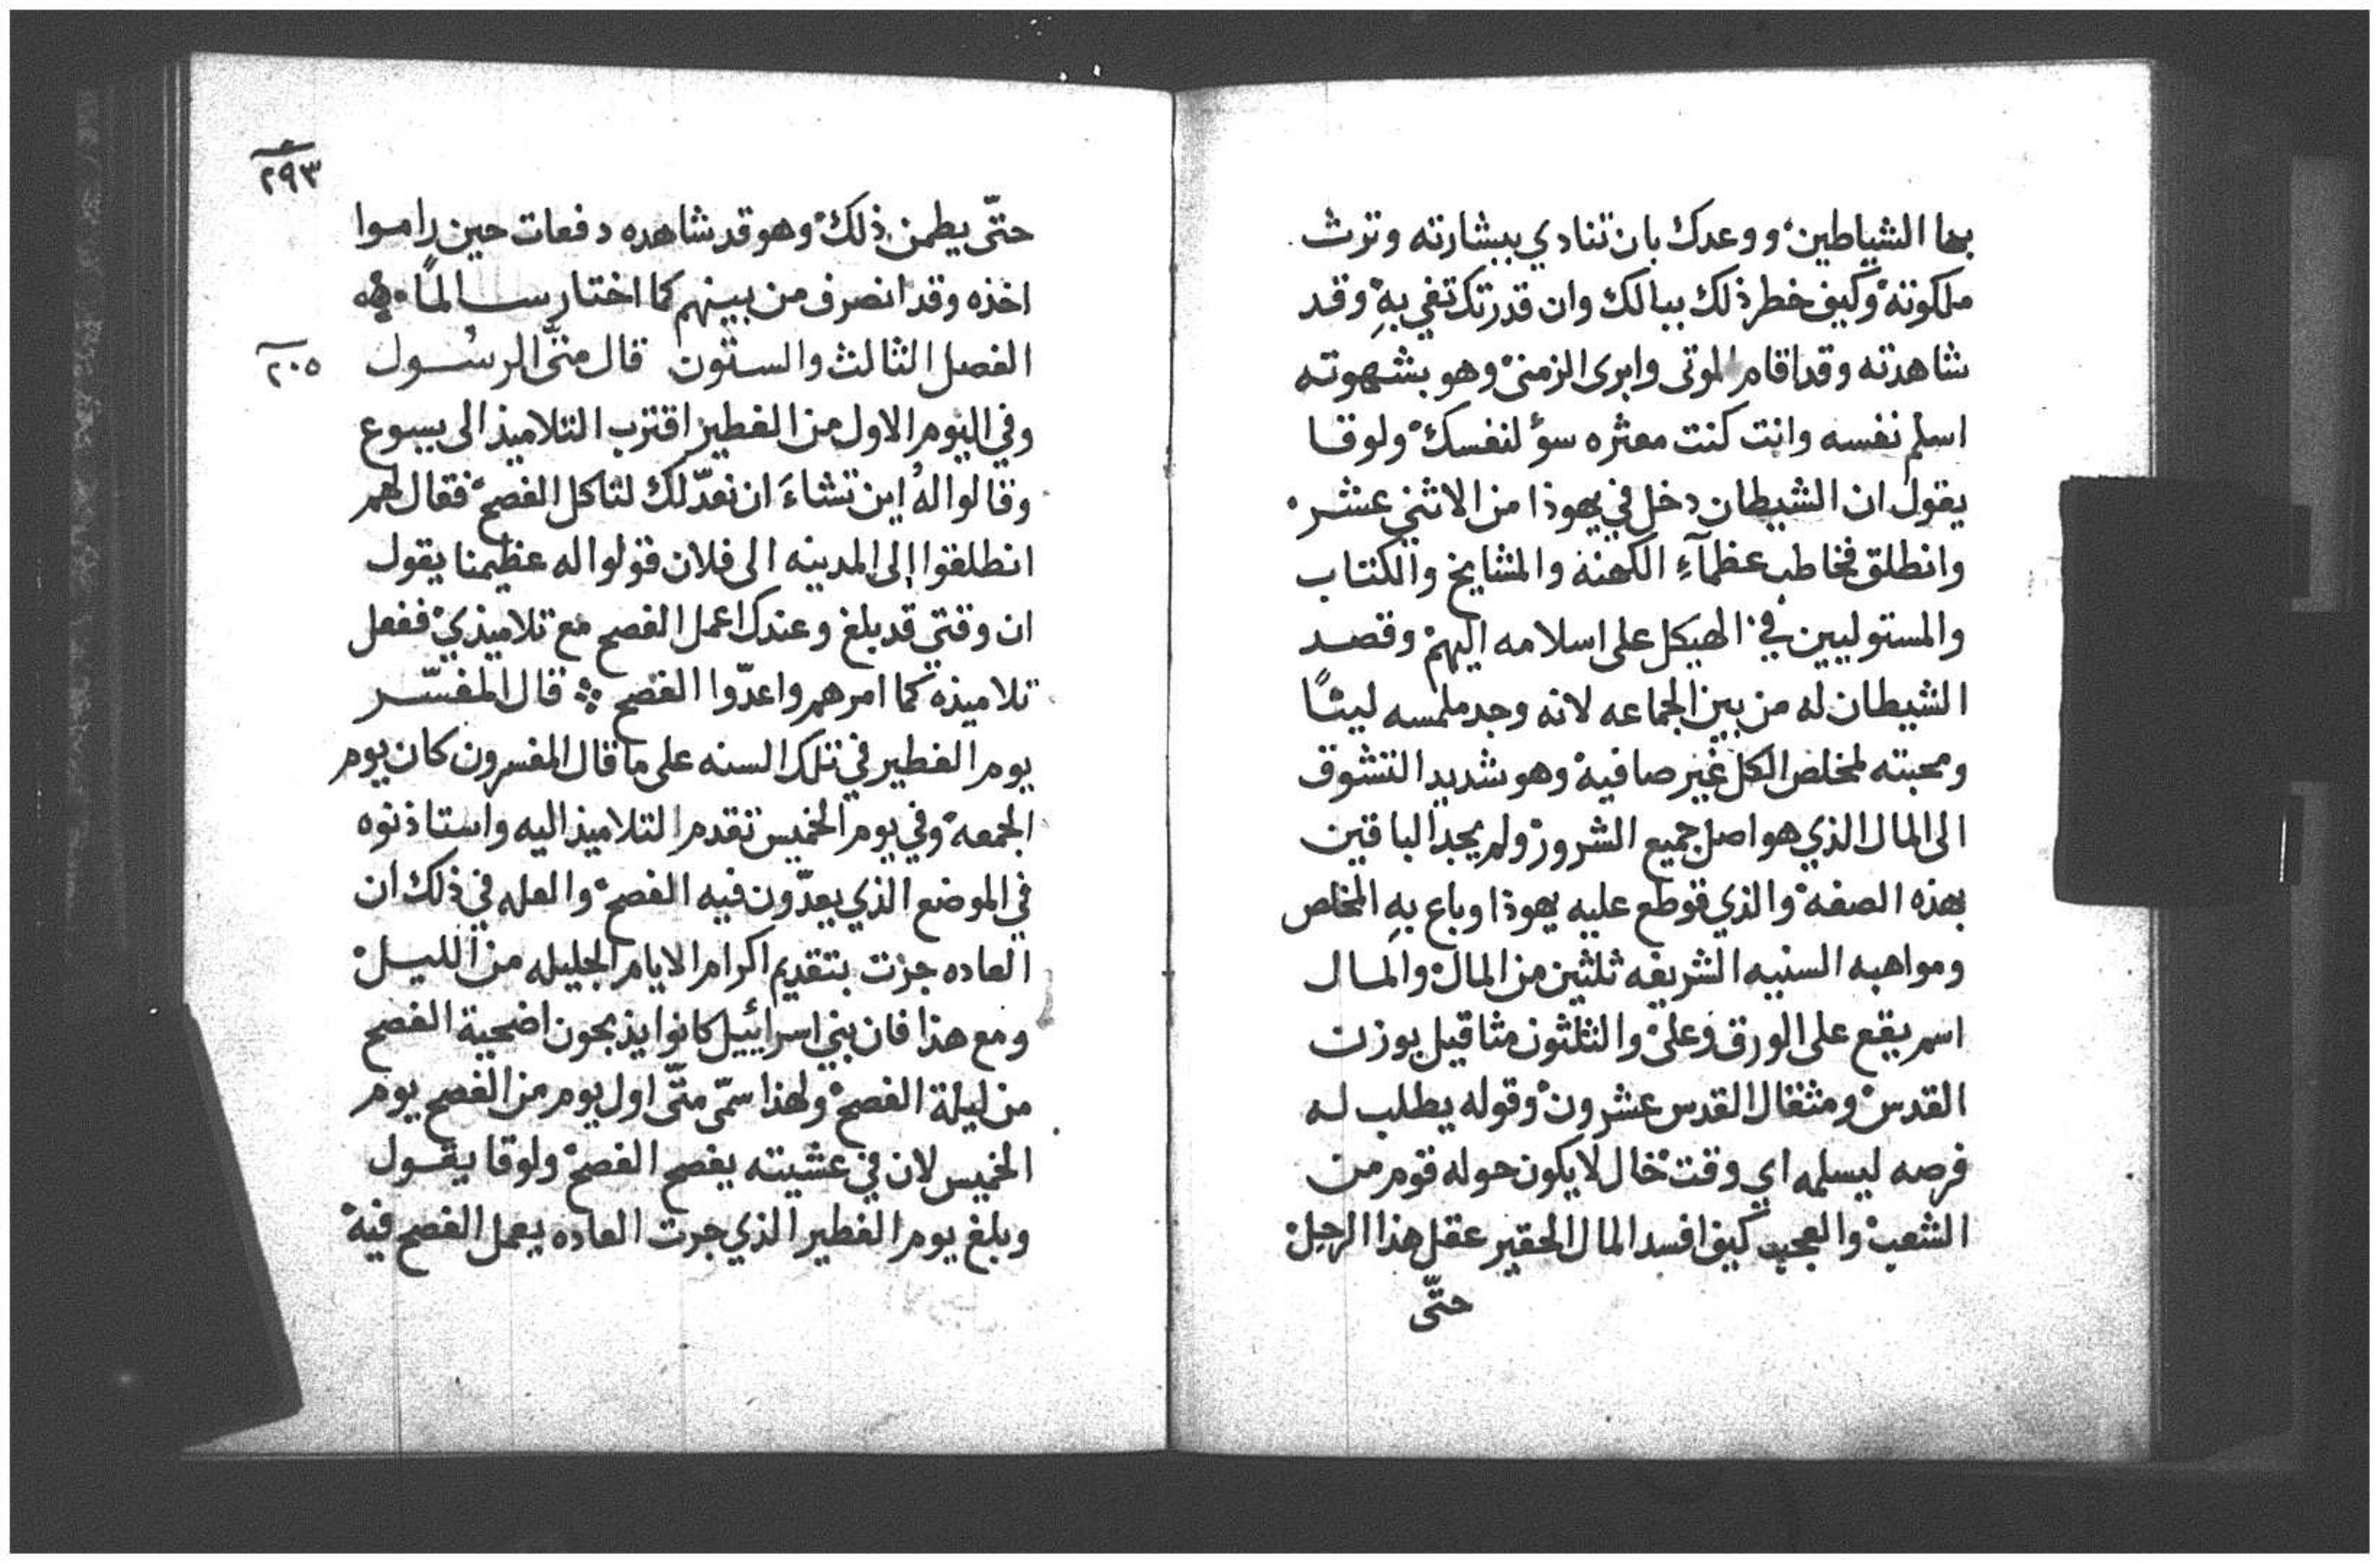 بها الشياطين ووعدك بان تنادي ببشارته وترث
ملكوته وكيف خطر ذلك ببالك وان قدرتك تفي بهِ وقد
شاهدته وقد اقام الموتى وابرى الزمنى وهو بشهوته
اسلم نفسه وانت كنت معثره سؤ لنفسك ولوقا
يقول ان الشيطان دخل في يهوذا من الاثني عشر
وانطلق فخاطب عظمآءِ الكهنة والمشايخ والكتاب
والمستوليين في الهيكل على اسلامه اليهم وقصد
الشيطان له من بين الجماعه لانه وجد ملمسه ليثًا
ومحبته لمخلص الكل غير صافية وهو شديد التشوق
الى المال الذي هو اصل جميع الشرور ولم يجد الباقين
بهذه الصفة والذي قوطع عليه يهوذا وباع بهِ المخلص
ومواهبه السنيه الشريفه ثلثين من المال والمال
اسم يقع على الورق وعلى والثلثون مثاقيل بوزن
القدس ومثقال القدس عشرون وقوله يطلب له
فرصه ليسلمه اي وقت خال لا يكون حوله قوم من
الشعب والعجب كيف افسد المال الحقير عقل هذا الرجل
حتّى
٢٩٣
حتّى يطمن ذلك وهو قد شاهده دفعات حين راموا
اخذه وقد انصرف من بينهم كما اختار سالمًا
الفصل الثالث والستون قال متّى الرسُول
٢٠٥
وفي اليوم الاول من الفطير اقترب التلاميذ الى يسوع
وقالوا لهُ اين تشاءَ ان نعدّ لك لتاكل الفصح فقال لهم
انطلقوا إلى المدينه الى فلان قولوا له عظيمنا يقول
ان وقتي قد بلغ وعندك اعمل الفصح مع تلاميذي ففعل
تلاميذه كما امرهم واعدّوا الفصح قال المفسّر
يوم الفطير في تلك السنه على ما قال المفسرون كان يوم
الجمعة وفي يوم الخميس تقدم التلاميذ اليه واستاذنوه
في الموضع الذي يعدّون فيه الفصح والعله في ذلك ان
العاده جرت بتقديم اكرام الايام الجليله من الليل
ومع هذا فان بني اسراييل كانوا يذبحون اضحية الفصح
من ليلة الفصح ولهذا سمّى متّى اول يوم من الفصح يوم
الخميس لان في عشيته يفصح الفصح ولوقا يقول
وبلغ يوم الفطير الذي جرت العاده يعمل الفصح فيه